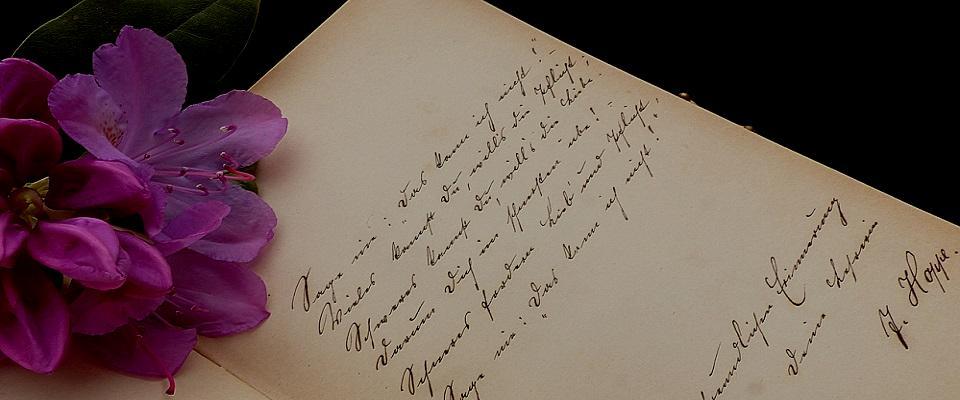 Sage nie: „Das kann ich nicht!“
Vieles kannst Du, will's die Pflicht.
Schweres kannst Du, will's die Liebe.
Darum Dich im Schwersten übe!
Schweres fordern Lieb' und Pflicht.
Sage nie: „Das kann ich nicht!“
freundlichen Erinnerung
Deine
J. Hoppe.